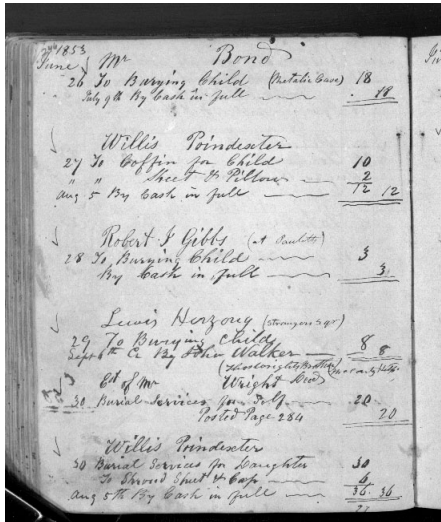 1853
June Mr Bond
26 To Burying Child (Metalic Case) 18
July 9th By Cash in full 18
Willis Poindexter
27 To Coffin for Child 10
" " Sheet & Pillow 2
Aug 5 By Cash in full 12 12
Robert J Gibbs (at Pauletts)
28 To Burying Child 3
By Cash in full 3
Lewis Herzog (Strangers
29 To Burying Child 8
Sept 6th Cr By John Walker 8
Est of Mr Wright Decd
30 Burial Services for Self 20
Posted Page 284 20
Willis Poindexter
30 Burial Services for Daughter 30
To Shroud Sheet & Cap 6
Aug 5th By Cash in full 36 36